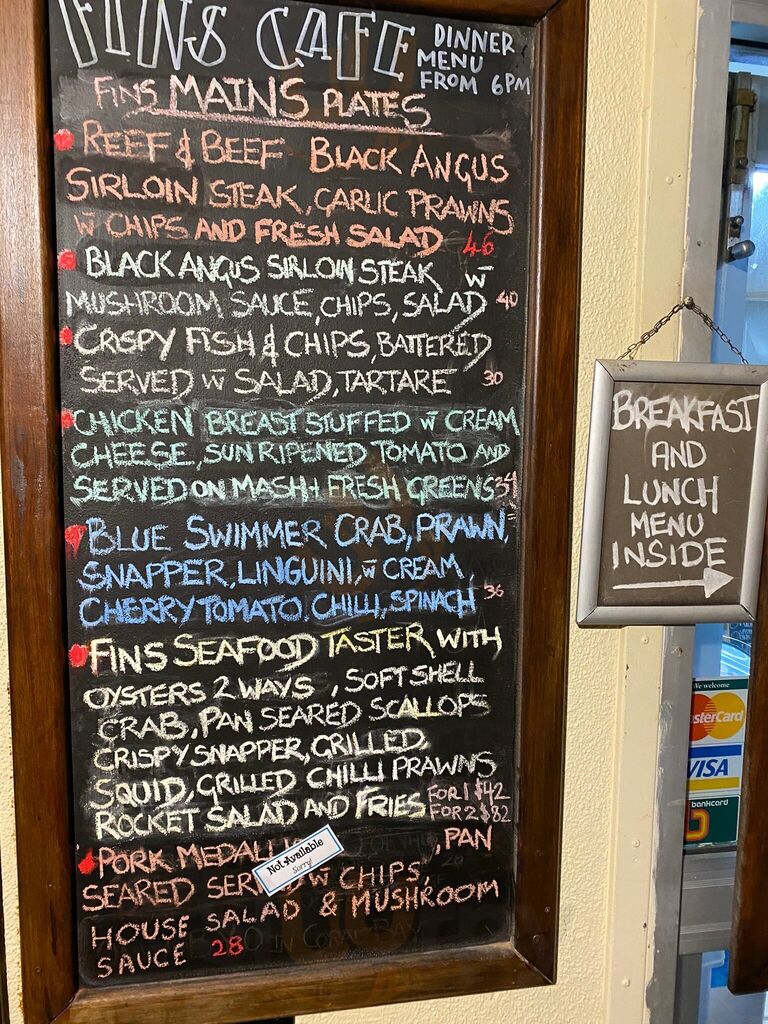 FINS CAFE
DINNER
MENU
FROM 6PM
FINS MAINS PLATES
REEF & BEEF BLACK ANGUS
SIRLOIN STEAK, GARLIC PRAWNS
W̄ CHIPS AND FRESH SALAD 46
BLACK ANGUS SIRLOIN STEAK W̄
MUSHROOM SAUCE, CHIPS, SALAD 40
CRSPY FISH & CHIPS, BATTERED
SERVED W̄ SALAD, TARTARE 30
CHICKEN BREAST STUFFED W̄ CREAM
CHEESE, SUN RIPENED TOMATO AND
SERVED ON MASH + FRESH GREENS 34
BLUE SWIMMER CRAB, PRAWN,
SNAPPER, LINGUINI, W̄ CREAM,
CHERRY TOMATO, CHILLI, SPINACH 36
FINS SEAFOOD TASTER WITH
OYSTERS 2 WAYS, SOFT SHELL
CRAB, PAN SEARED SCALLOPS
CRISPY SNAPPER, GRILLED,
SQUID, GRILLED CHILLI PRAWNS
ROCKET SALAD AND FRIES FOR 1 $42
FOR 2 $82
PORK MEDALL , PAN
Not Available
Sorry!
SEARED SER W̄ CHIPS,
HOUSE SALAD & MUSHROOM
SAUCE 28
BREAKFAST
AND
LUNCH
MENU
INSIDE
We welcome
sterCard
VISA
bankcard